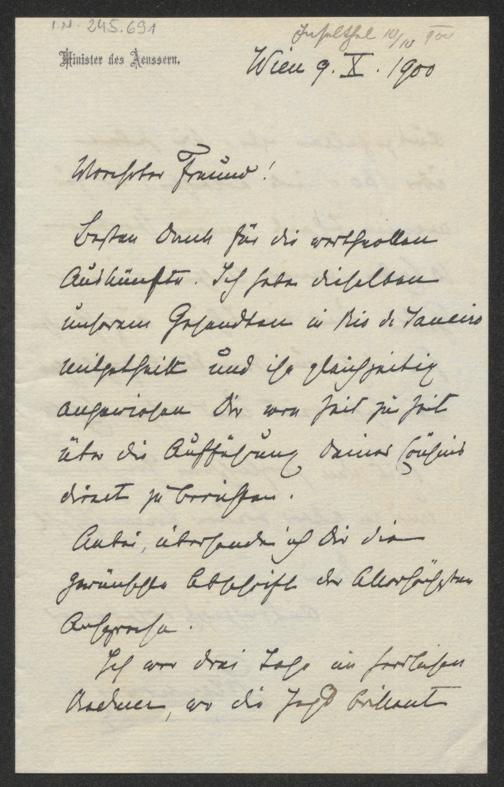 I.N. 245.691
10/10 900
Minister des Aeussern.
Wien 9. X. 1900
Verehrter Freund!
besten Dank für die werthvollen
Auskünfte. Ich habe dieselben
unserem Gesandten in Rio de Janeiro
mitgetheilt und ihn gleichzeitig
angewiesen Dir von Zeit zu Zeit
über die Aufführung Deines Cousins
direct zu berichten.
Anbei, übersende ich Dir die
gewünschte Abschrift der Allerhöchsten
Ansprache.
Ich war drei Tage im herrlichen
wo die Jagd brillant